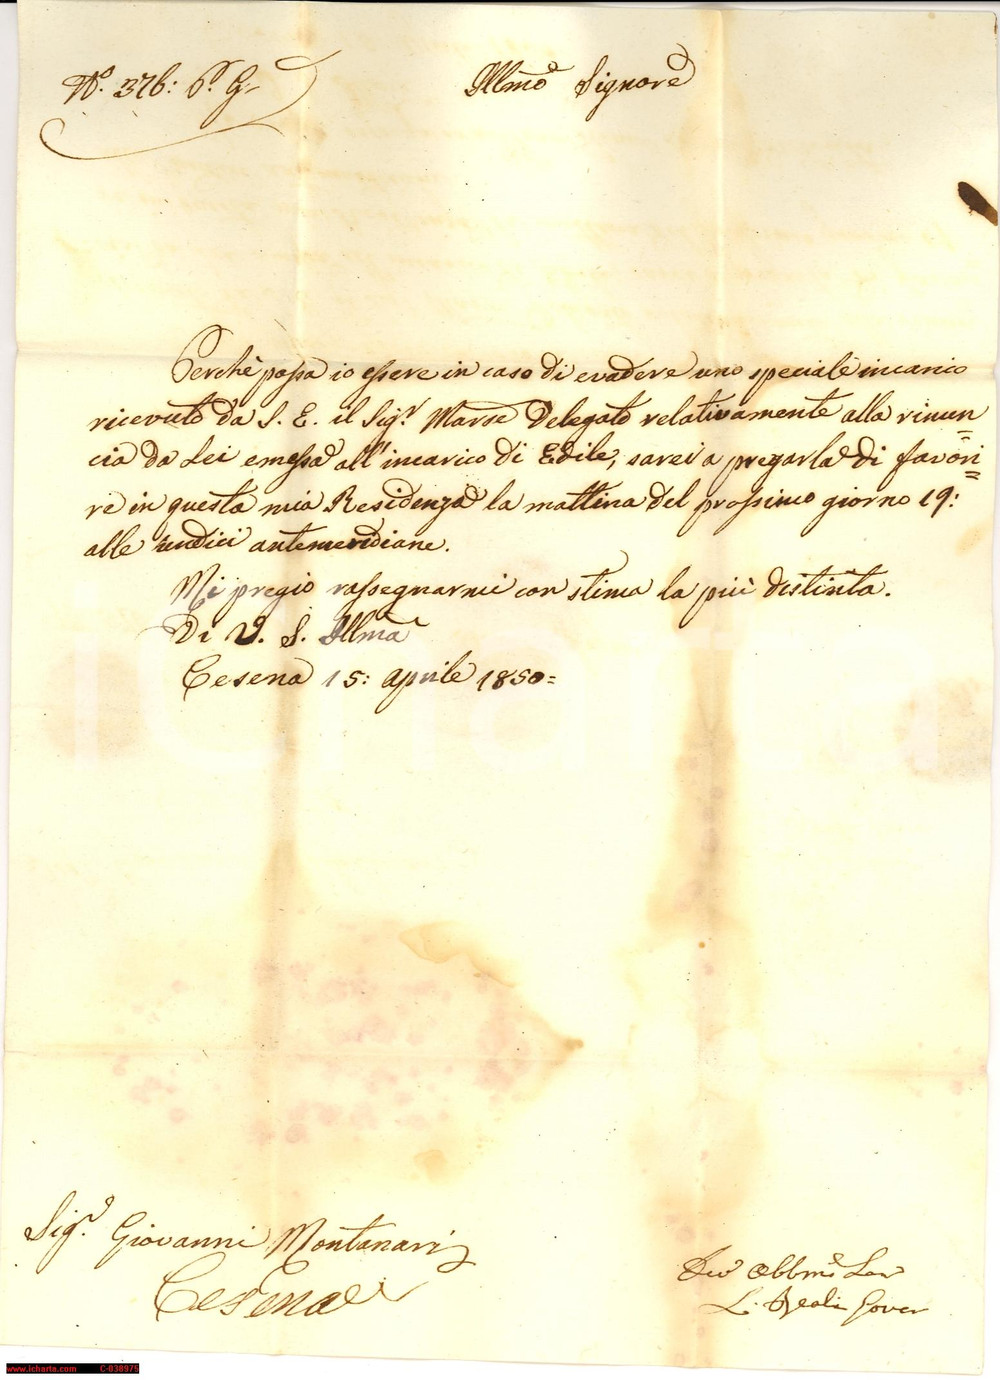 N.º 376: P. G.
Illmo Signore
Perchè possa io essere in caso di evadere uno speciale incarico
ricevuto da S. E. il Sig.r Monse Delegato relativamente alla rinun=
cia da Lei emessa all'incarico di Edile, sarei a pregarla di favori=
re in questa mia Residenza la mattina del prossimo giorno 19:
alle undici antemeridiane.
Mi pregio rassegnarmi con stima la più distinta.
Di V. S. Illma
Cesena 15: Aprile 1850=
Sig.r Giovanni Montanari
Cesena
Dev Obbmo
L. Gover
www.icharta.com C-038975